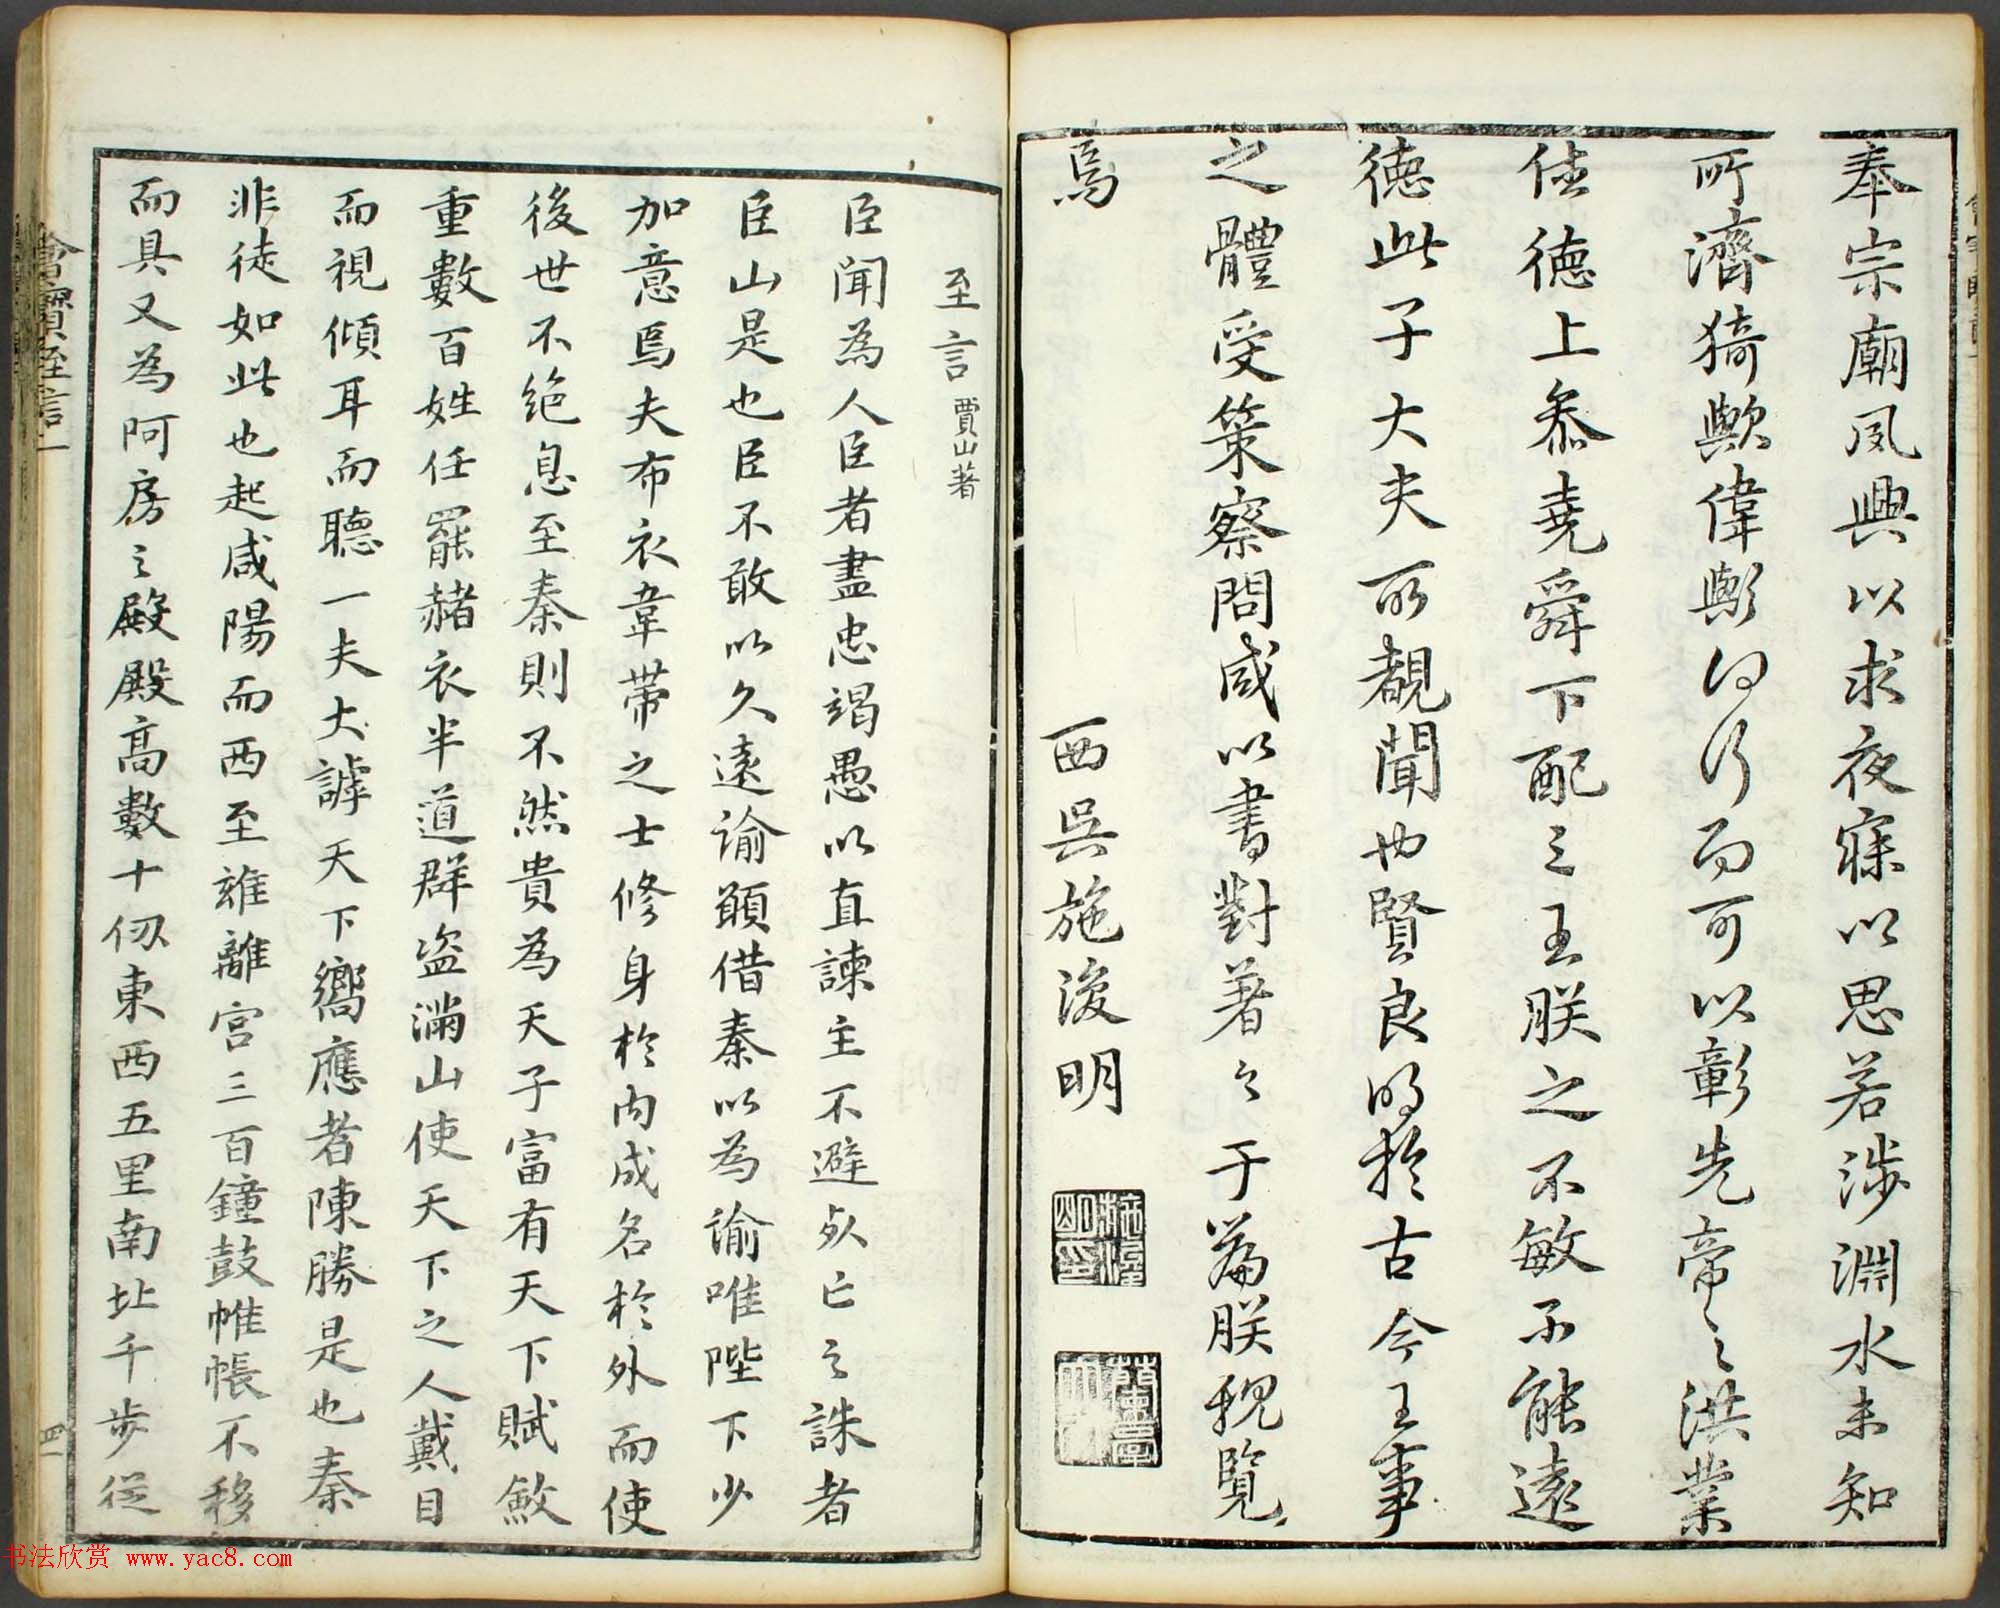 奉宗廟夙興以求夜寐以思若涉淵水未知
所濟猗歟偉歟何行而可以彰先帝之洪業
休德上叅堯舜下配三王朕之不敏不能遠
德此子大夫所覩聞也賢良明於古今王事
之體受策察問咸以書對著之于篇朕親覽
焉
西吳施浚明
至言 賈山著
臣聞為人臣者盡忠竭愚以直諫主不避死亡之誅者
臣山是也臣不敢以久遠諭願借秦以為諭唯陛下少
加意焉夫布衣韋帶之士修身於內成名於外而使
後世不絕息至秦則不然貴為天子富有天下賦斂
重數百姓任罷赭衣半道群盜滿山使天下之人戴目
而視傾耳而聽一夫大謼天下嚮應者陳勝是也秦
非徒如此也起咸陽而西至雍離宮三百鐘鼓帷帳不移
而具又為阿房之殿殿高數十仞東西五里南北千步從
四
书法欣赏 www.yac8.com